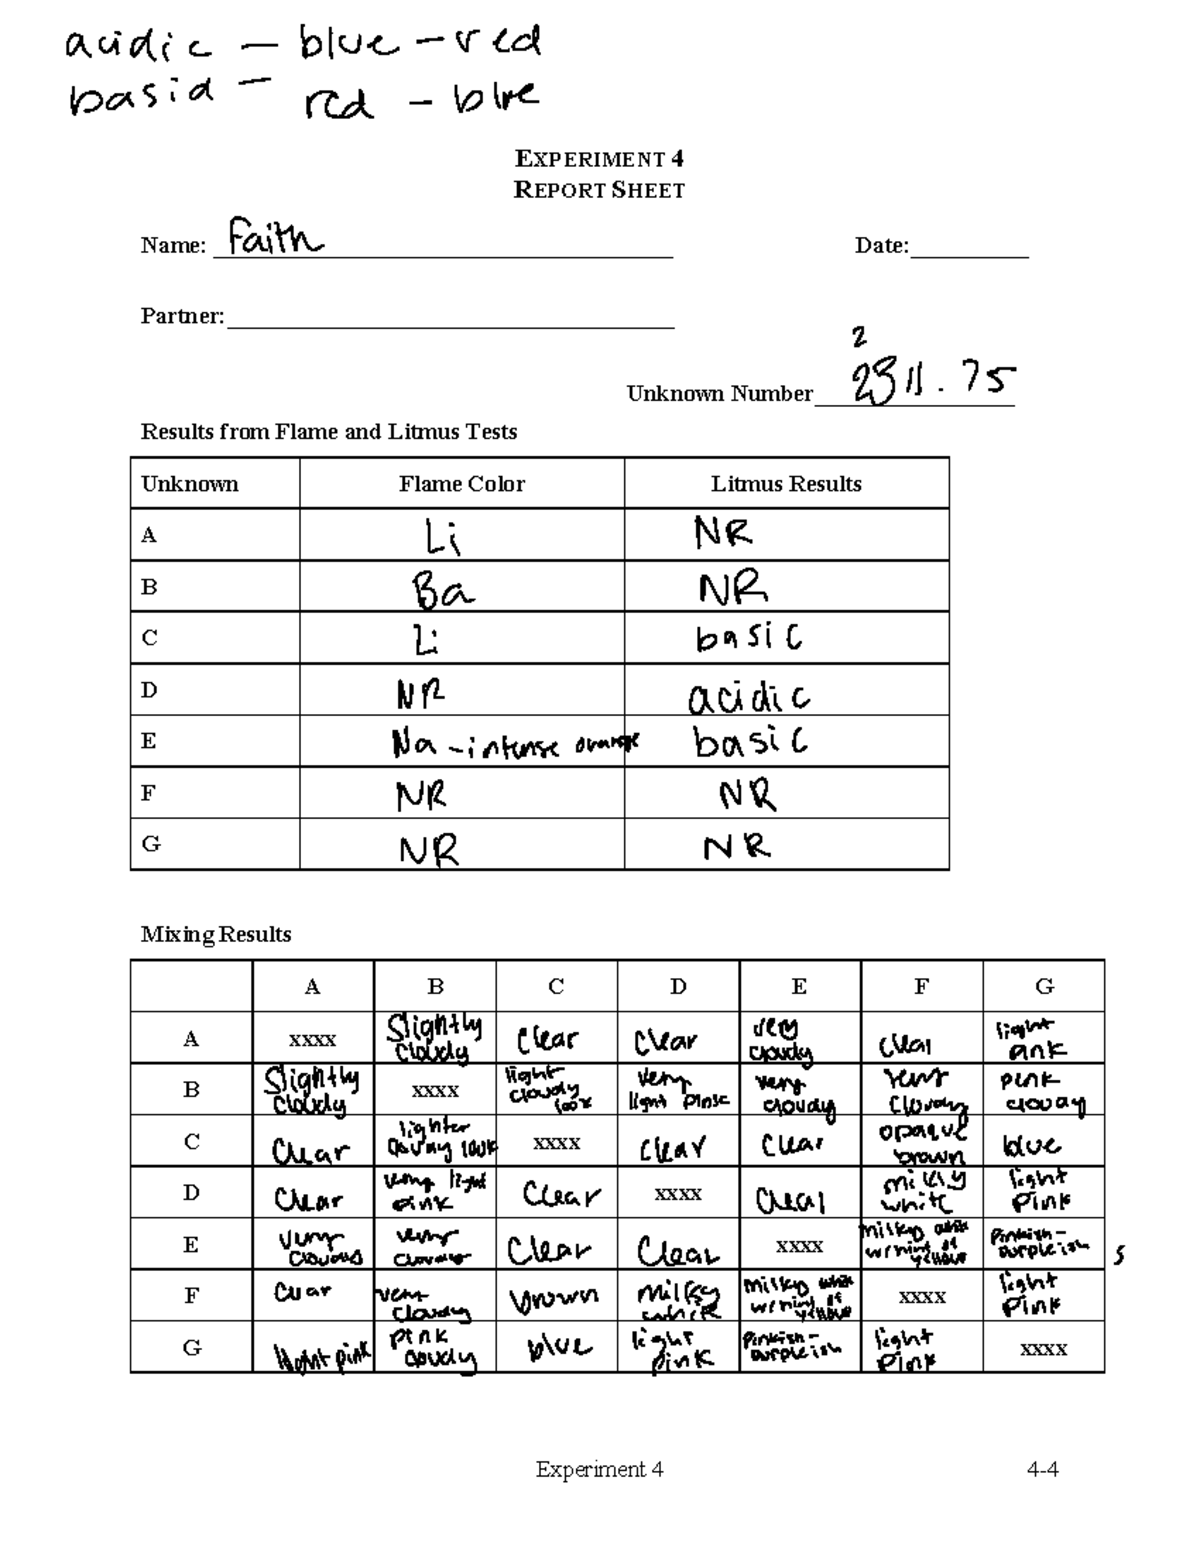 acidic — blue – red
basid – red – blue
EXPERIMENT 4
REPORT SHEET
Name: Faith Date:
Partner:
2
Unknown Number 2311.75
Results from Flame and Litmus Tests
Unknown Flame Color Litmus Results
A Li NR
B Ba NR
C Li basic
D NR acidic
E Na - intense orange basic
F NR NR
G NR NR
Mixing Results
A B C D E F G
A xxxx Slightly cloudy Clear Clear very cloudy clear light
B Slightly cloudy xxxx light cloudy very light pink very cloudy very cloudy pink cloudy
C Clear lighter xxxx clear clear opaque brown blue
D Clear very light pink Clear xxxx Clear milky white light pink
E very cloudy very cloudy Clear Clear xxxx milky white w/ mint of yellow Pinkish – purpleish s
F clear very cloudy brown milky white milky white w/ mint of yellow xxxx light pink
G light pink pink cloudy blue light pink Pinkish – purpleish light pink xxxx
Experiment 4 4-4